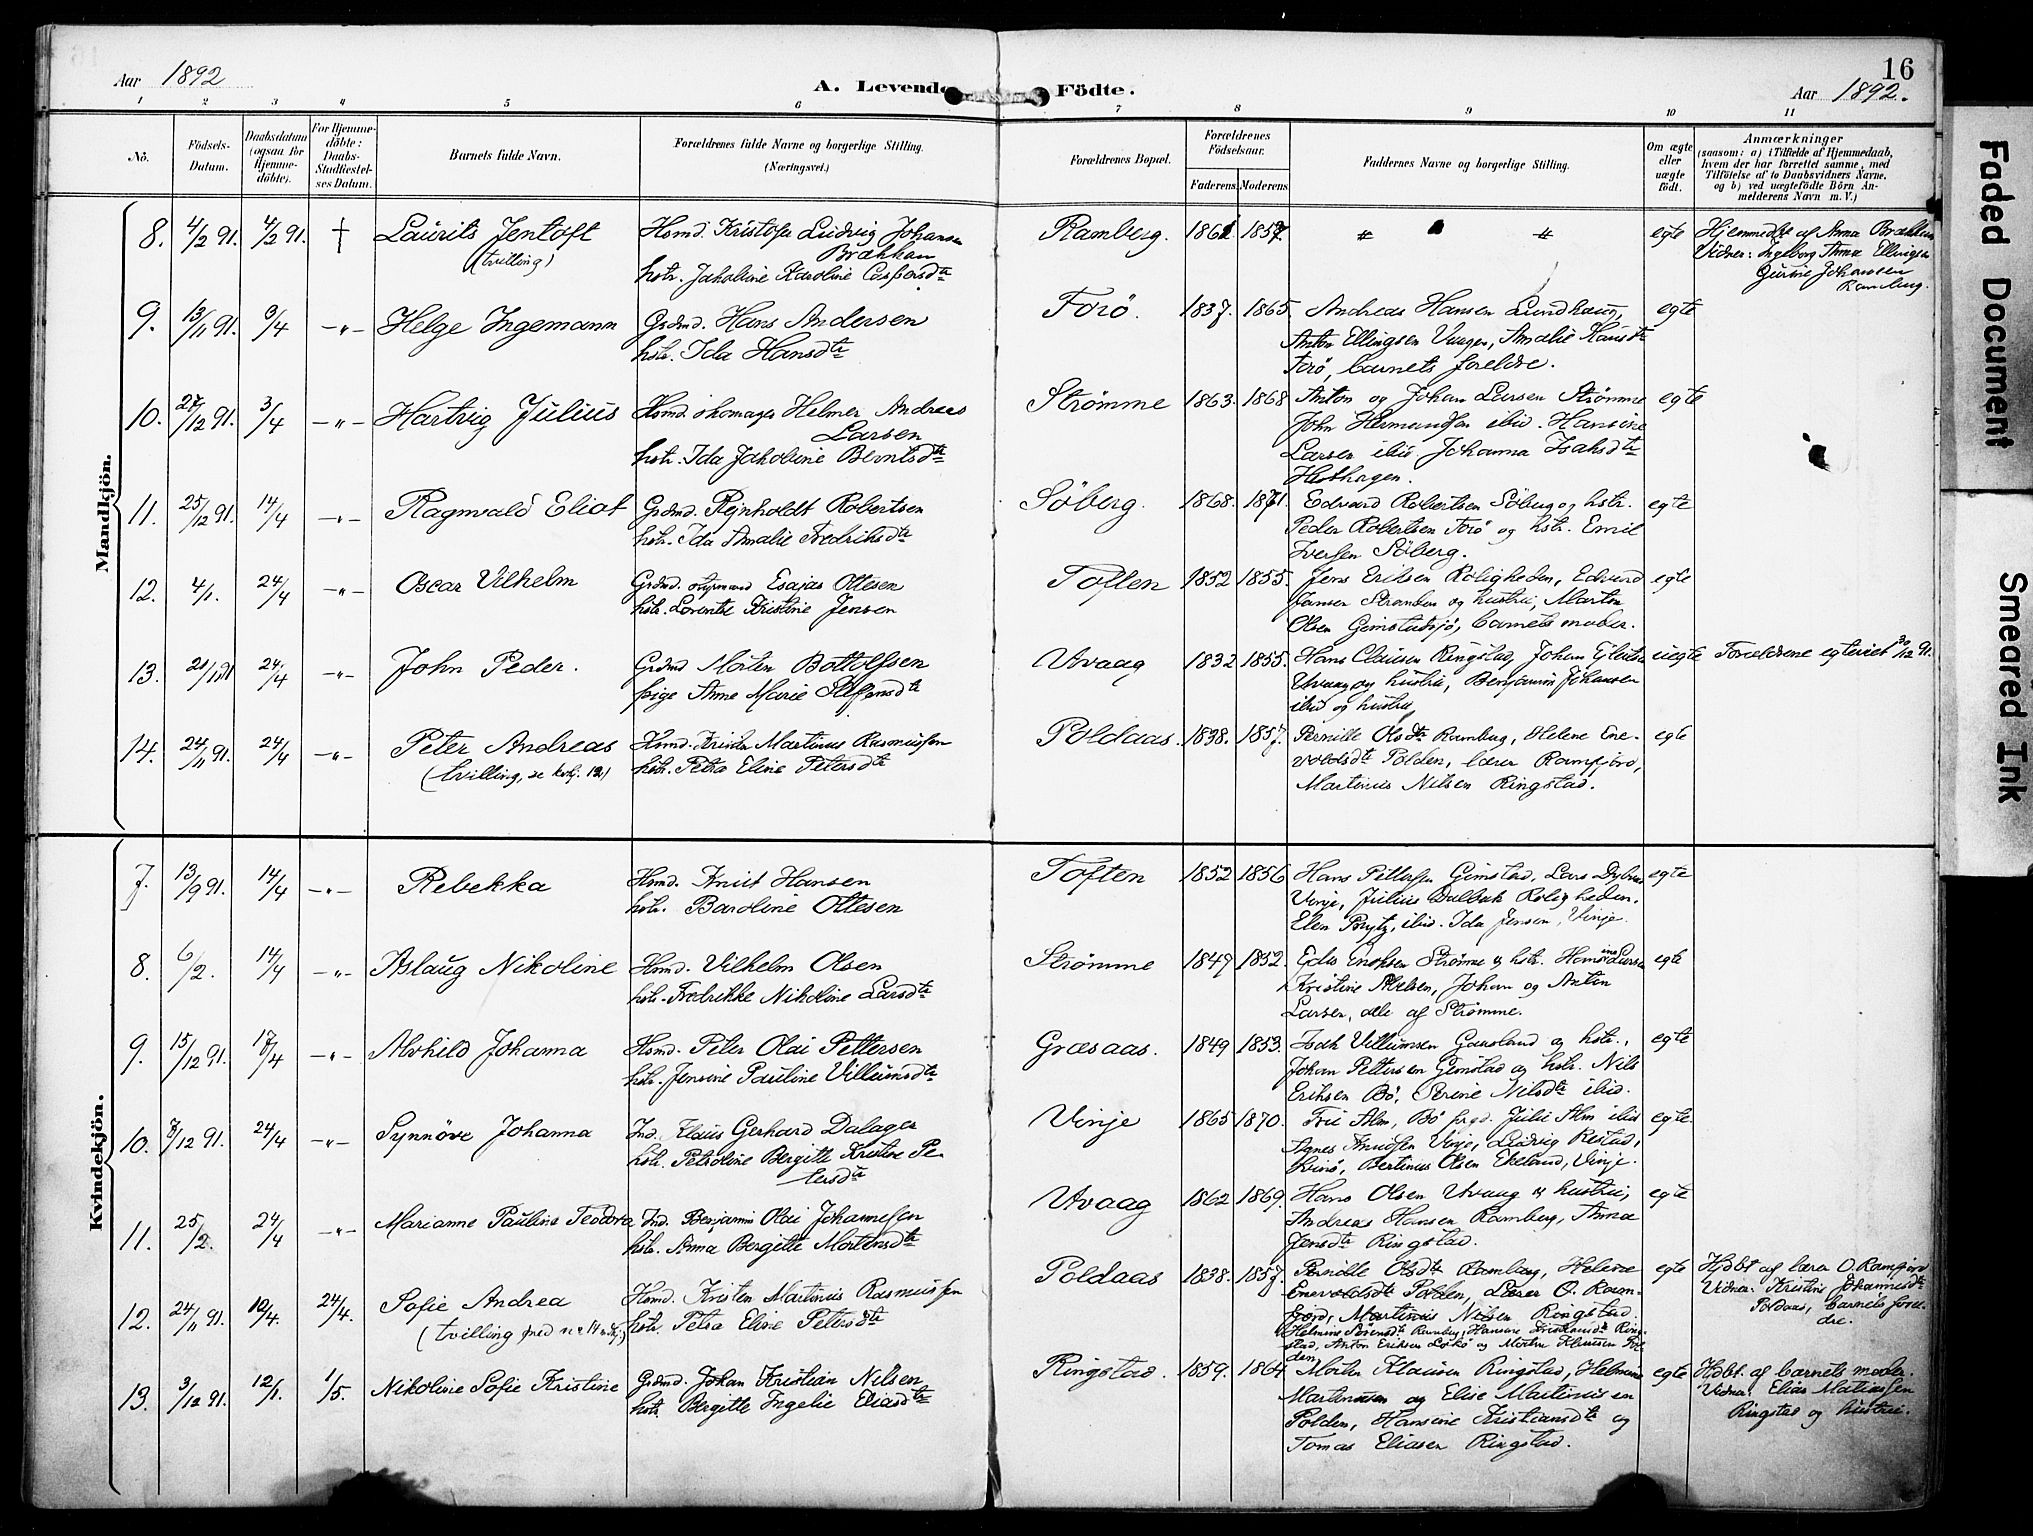 16
Aar 1892
A. Levende Födte.
Aar 1892.
1 2 3 4 5 6 7 8 9 10 11
No.
Födsels-
Datum.
Daabsdatum
(ogsaa for
Hjemme-
döbte).
For Hjemme-
döbte:
Daabs-
Stadfæstel-
ses Datum.
Barnets fulde Navn.
Forældrenes fulde Navne og borgerlige Stilling.
(Næringsvei.)
Forældrenes Bopæl.
Forældrenes
Födselsaar.
Faderens. Moderens.
Faddernes Navne og borgerlige Stilling.
Om ægte
eller
uægte
födt.
Anmærkninger
(saasom: a) i Tilfælde af Hjemmedaab,
hvem der har forrettet samme, med
Tilföielse af to Daabsvidners Navne,
og b) ved uægtefödte Börn An-
melderens Navn m. V.)
Mandkjön.
8. 4/2 91. 4/2 91. † Laurits Jentoft
(tvilling)
Hsmd. Kristofer Ludvig Johansen
Brækkan
hstr. Jakobine Karoline Caspersdtr
Ramberg. 1861 1857 egte
Hjemmedbt af Anna Brækkan
Vidner: Ingeborg Anna Ellingsen
Gurine Johansen
Ramberg.
9. 13/11 91. 3/4 -"- Helge Ingemann
Grdmd. Hans Andersen
hstr. Ida Hansdtr
Forö. 1837. 1865.
Andreas Hansen Lundhaug,
Anton Ellingsen Vangen, Amalie Hansdtr
Forö, barnets foreldre.
egte
10. 27/12 91. 3/4 -"- Hartvig Julius
Hsmd. skomager Helmer Andreas
Larsen
hstr. Ida Jakobine Berntsdtr
Strömme 1863. 1868
Anton og Johan Larsen Strömme
John Hermandsen ibid. Hansine
Larsen ibid. Johanna Isaksdtr
Hesthagen.
egte
11. 25/12 91. 14/4 -"- Ragnvald Eliot
Grdmd. Rejnholdt Robertsen
hstr. Ida Amalie Fredriksdtr
Söberg. 1868. 1871.
Edvard Robertsen Söberg og hstr.
Peder Robertsen Forö og hstr. Emil
Iversen Söberg.
egte
12. 4/1. 24/4 -"- Oscar Vilhelm
Grdmd. styrmand Esajas Ottesen
hstr. Lorentse Kristine Jensen
Toften 1852 1855.
Jens Eriksen Roligheden, Edvard
Jansen Stranden og hustru, Marton
Olsen Gimstadsjö, barnets moder.
egte
13. 24/4 -"- John Peder.
Grdmd Morten Bottolfsen
pige Anne Marie
Uvaag 1832 1855.
Hans Clausen Ringstad, Johan
Uvaag og hustru, Benjamin Johansen
ibid og hustru
uegte
Forældrene egteviet 30/12 91.
14. 24/11 91. 24/4 -"- Peter Andreas
(tvilling, se kvkj. 12.)
Hsmd. Kristen Martinus Rasmussen
hstr. Petra Eline Petersdtr
Poldaas. 1838. 1857.
Pernille Olsdtr Ramberg, Helene Ene-
voldsdtr Polden, lærer Ramfjord,
Martinus Nilsen Ringstad.
egte
Kvindekjön.
7. 13/9 91. 14/4 -"- Rebekka
Hsmd. Knut Hansen
hstr. Baroline Ottesen
Toften 1852 1856
Hans Pettersen Gimstad, Lars
Vinje, Julius Dalbak Roligheden,
Elen Brytz, ibid. Ida Jensen, Vinje.
egte
8. 6/2. 14/4 -"- Aslaug Nikoline
Hsmd. Vilhelm Olsen
hstr. Fredrikke Nikoline Larsdtr
Strömme 1849 1852.
Enoksen Strömme og hstr. Hansine Larsen
Kristine Johan og Anton
Larsen, alle af Strömme.
egte
9. 15/12 91. 17/4 -"- Alvhild Johanna
Hsmd. Peter Olai Pettersen
hstr. Jensine Pauline Villumsdtr
Græsaas. 1849 1853.
Isak Villumsen Gaasland og hstr.,
Johan Pettersen Gimstad og hstr. Nils
Eriksen Bö, Serine Nilsdtr ibid.
egte
10. 8/12 91. 24/4 -"- Synnöve Johanna
Ind. Klaus Gerhard Dalager
hstr. Petroline Bergitte Kristine Pe-
tersdtr
Vinje 1865 1870.
Alm, Bö Julie Alm ibid
Agnes Knudsen Vinje, Ludvig Restad,
Bertinus Olsen Ekeland, Vinje.
egte.
11. 25/2. 24/4 -"- Marianne Pauline Teodora
Ind. Benjamin Olai Johannesen
hstr. Anna Bergitte Mortensdtr
Uvaag 1862 1869.
Hans Olsen Uvaag og hustru,
Andreas Hansen Ramberg, Anna
Jensdtr Ringstad.
egte
12. 24/11 91. 12/4. 24/4. Sofie Andrea
(tvilling med no 14 mkj.)
Hsmd. Kristen Martinus Rasmussen
hstr. Petra Eline Petersdtr
Poldaas 1838. 1857.
Pernille Olsdtr Ramberg, Helene
Enevoldsdtr Polden, Lærer O. Ram-
fjord, Martinus Nilsen Ringstad.
Helmine Sörensdtr Ramberg, Hansine Kristiansdtr Ring-
stad, Anton Eriksen og Morten Klausen Pol-
den
egte
Hjdbt af lærer O. Ramfjord
Vidner: Kristine Johannesdtr
Poldaas, barnets forel-
dre.
13. 3/12 91. 12/1. 1/5. Nikoline Sofie Kristine
Grdmd. Johan Kristian Nilsen
hstr Bergitte Ingelie Eliasdtr
Ringstad. 1859. 1864
Morten Klausen Ringstad, Helmine
Martinusen og Elise Martinusen
Polden, Hansine Kristiansdtr og
Tomas Eliasen Ringstad.
egte
Hdbt. af barnets moder.
Vidner: Elias Matiassen
Ringstad og hustru.
Faded Document
Smeared Ink